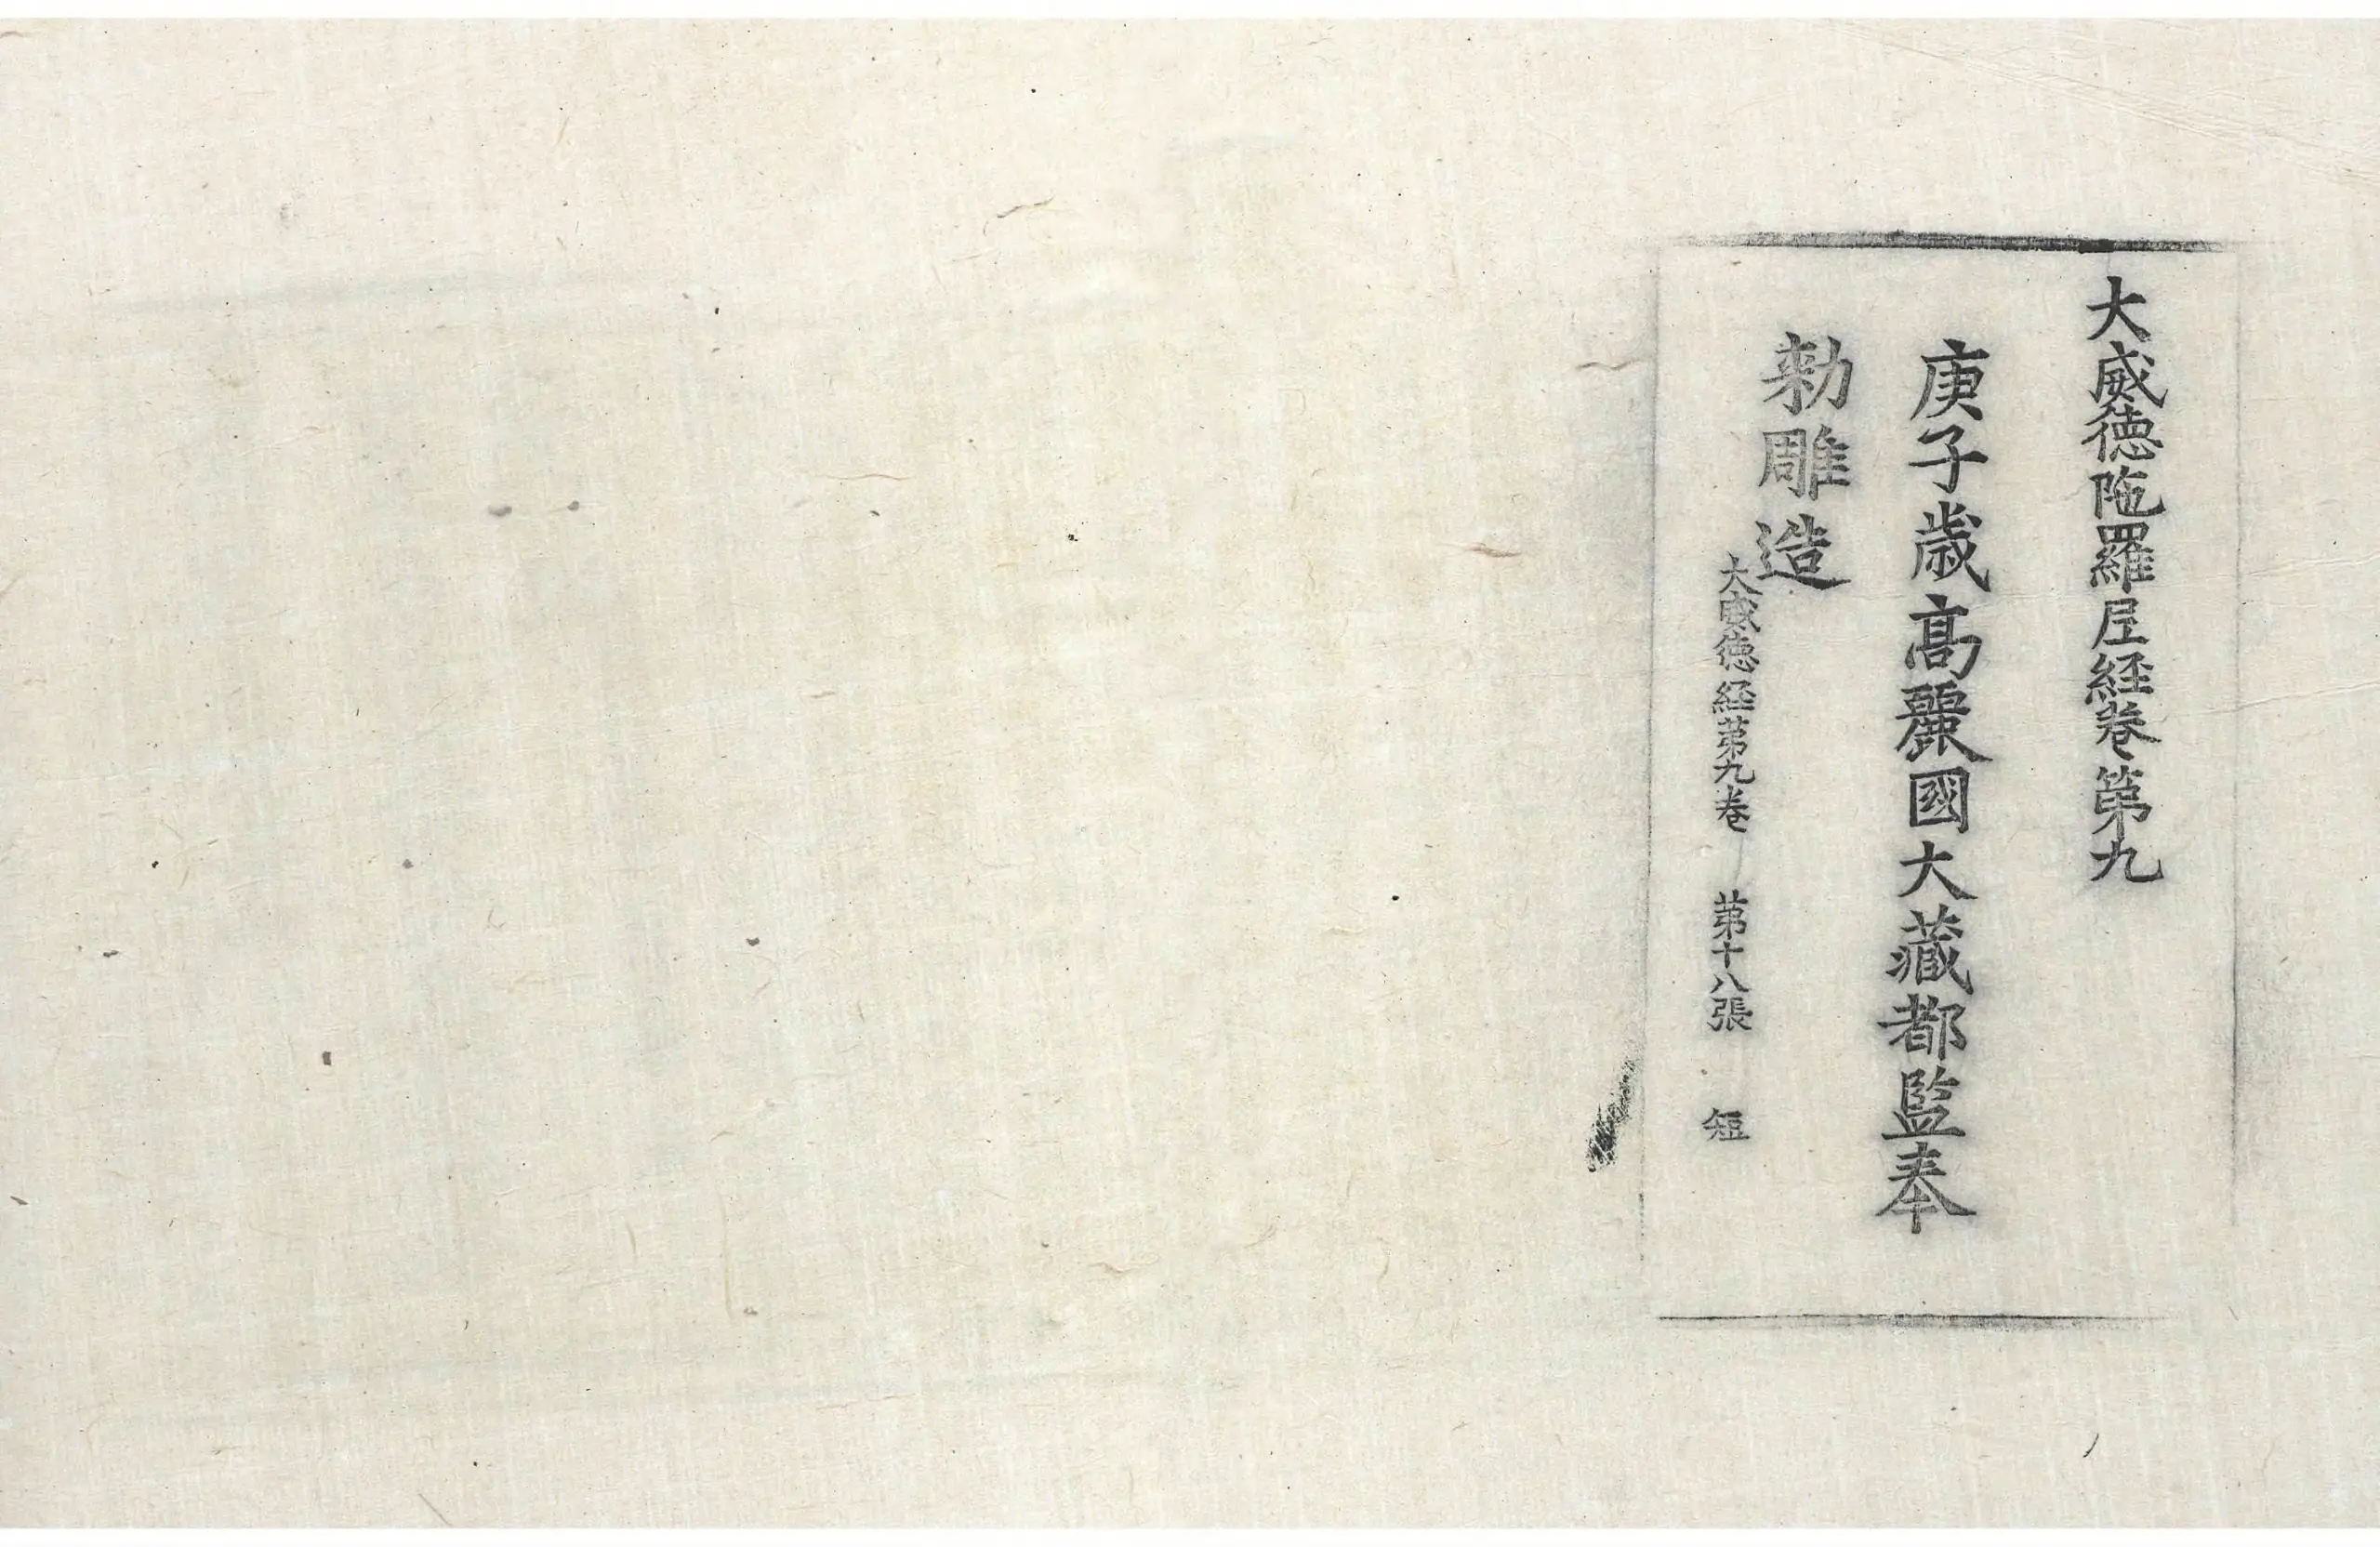 大威德陁羅尼経卷第九
庚子歳高麗國大藏都監奉
勑雕造
大威德経苐九卷 苐十八張 短